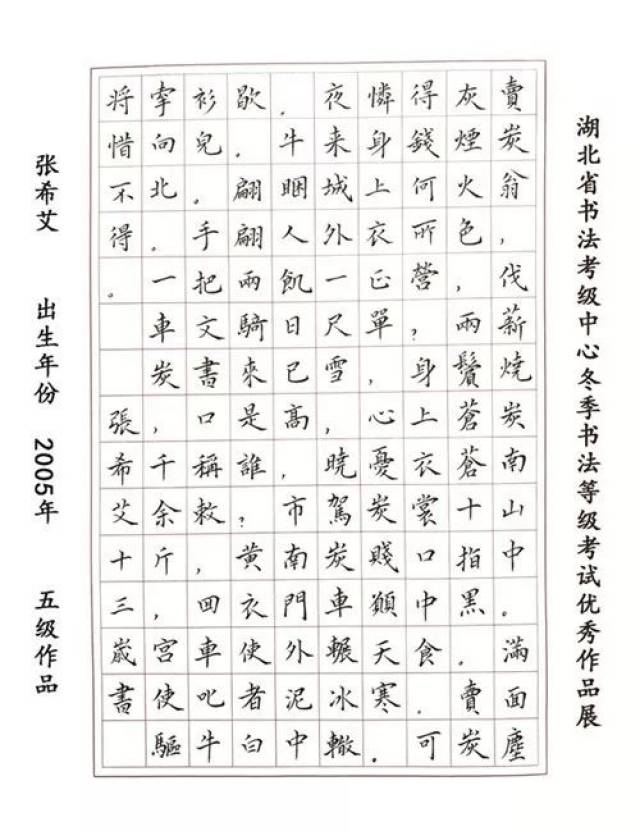 湖北省书法考级中心冬季书法等级考试优秀作品展
賣炭翁，伐薪燒炭南山中。滿面塵
灰煙火色，兩鬢蒼蒼十指黑。賣炭
得錢何所營？身上衣裳口中食。可
憐身上衣正單，心憂炭賤願天寒。
夜来城外一尺雪，曉駕炭車輾冰轍
。牛睏人飢日已高，市南門外泥中
歇。翩翩兩騎來是誰？黄衣使者白
衫兒。手把文書口稱敕，回車叱牛
牽向北。一車炭，千余斤，宮使驅
将惜不得。 張希艾十三歲書
张希艾 出生年份 2005年 五级作品